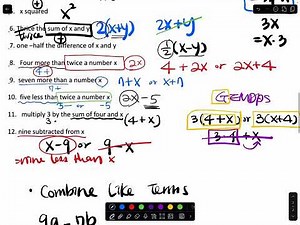 x squared x²
6. Thrice the sum of x and y twice 2(x+y) 2x+y 3x
= x·3
7. one-half the difference of x and y ½(x-y)
8. Four more than twice a number x 2x 4+ 4+2x or 2x+4
9. seven more than a number x 7+ 7+x or x+7
10. five less than twice a number x 5- or -5 2x-5 GEMDAS
11. multiply 3 by the sum of four and x 3· (4+x) 3(4+x) or 3(x+4)
12. nine subtracted from x 3·4+x
x-9 or 9-x
=nine less than x
• Combine Like Terms